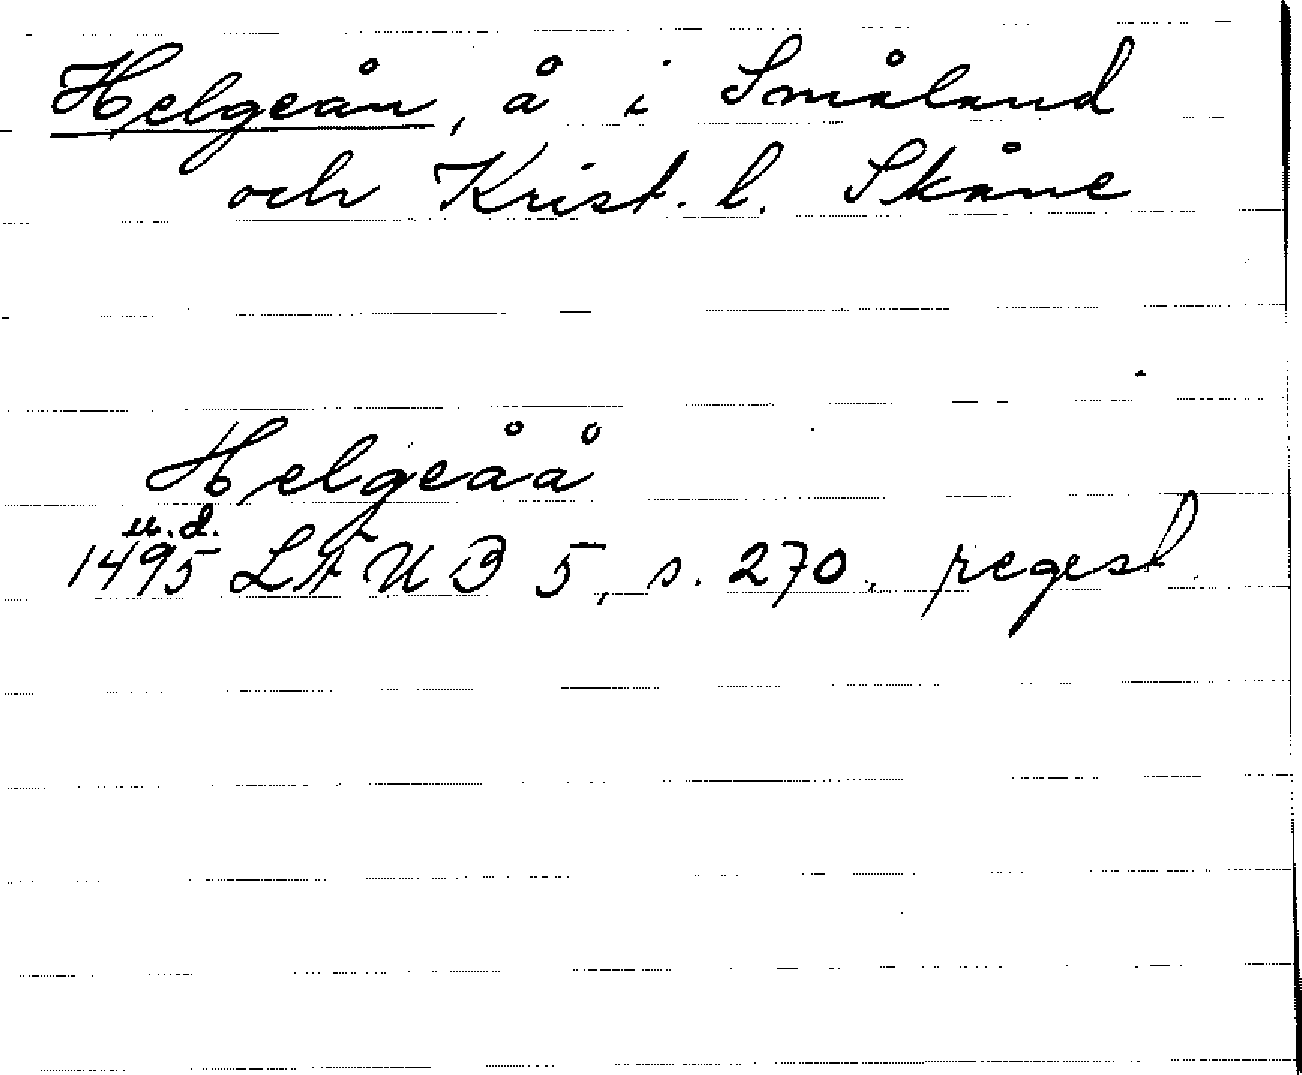 Helgeån, å i Småland
och Krist. l. Skåne
Helgeåå
u.d.
1495 LÄUB 5, s. 270, regest